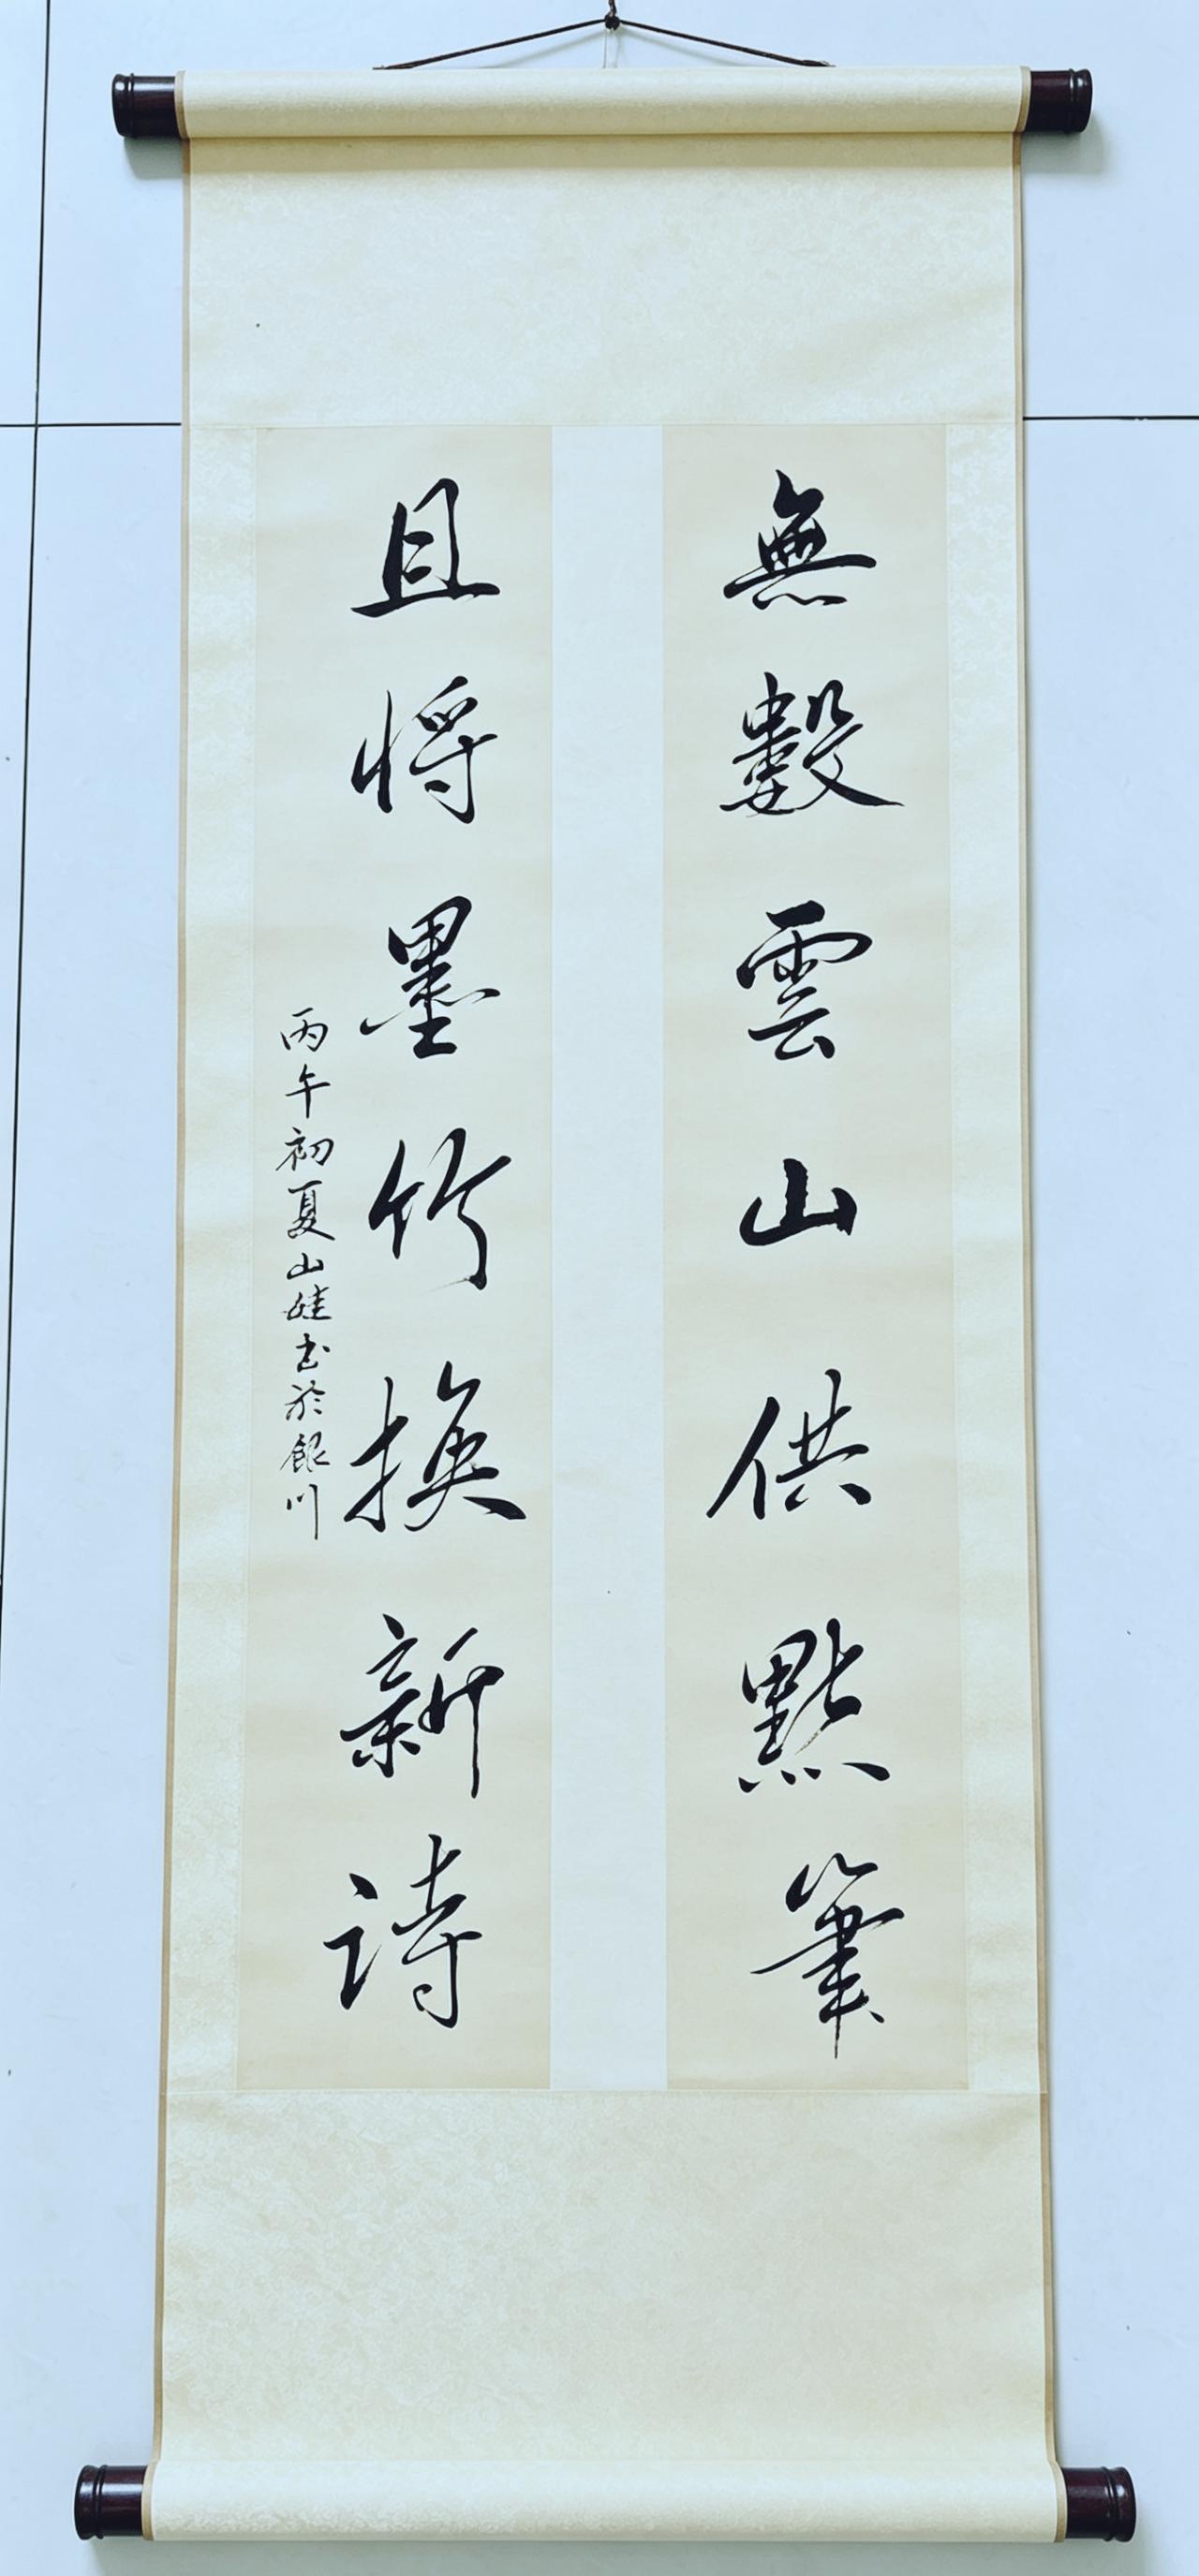 無數雲山供點筆
且将墨竹換新詩
丙午初夏山娃书於銀川